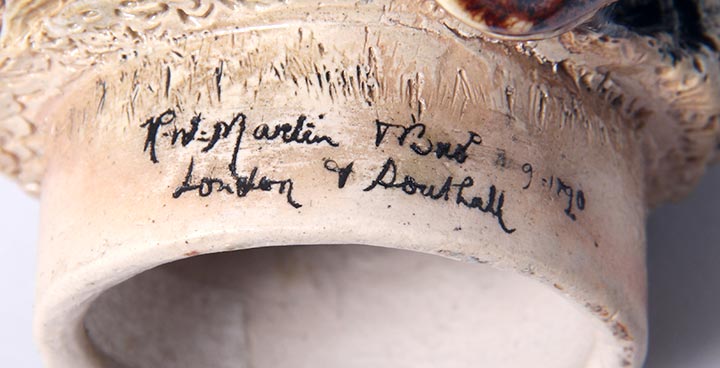 R.W. Martin & Bros 9-1890
London & Southall